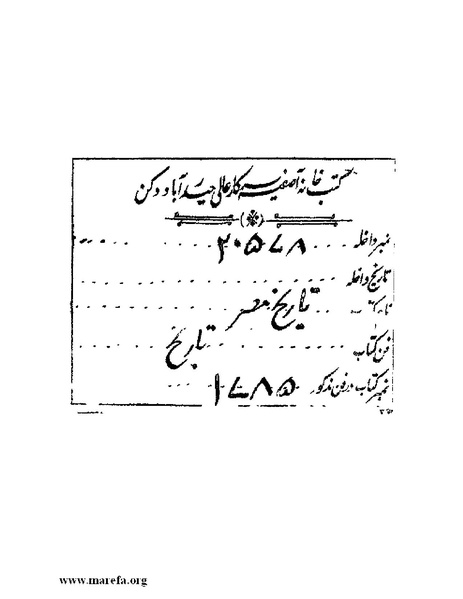 کتب خانہ آصفیہ سرکار عالی حیدرآباد دکن
نمبر داخلہ ۲۰۵۷۸
تاریخ داخلہ
نام کتاب تاریخ مصر
فن کتاب تاریخ
نمبر کتاب در فن مذکور ۱۷۸۵
www.marefa.org